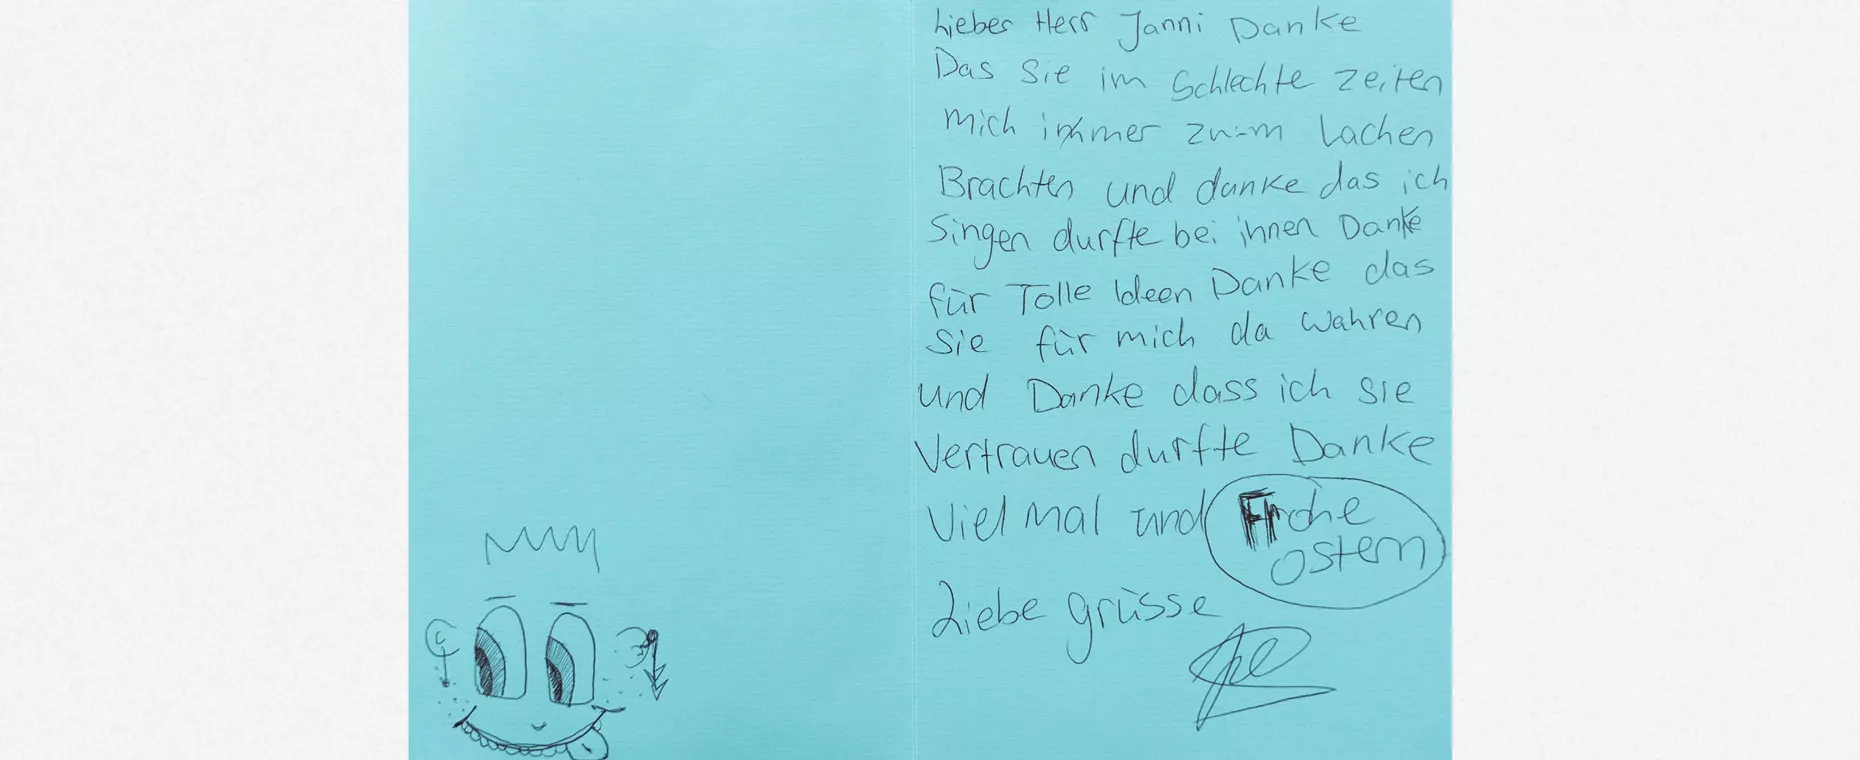 Lieber Herr Janni Danke
Das Sie im Schlechte Zeiten
mich immer zum Lachen
Brachten und danke das ich
Singen durfte bei ihnen Danke
für Tolle Ideen Danke das
Sie für mich da wahren
und Danke dass ich sie
Vertrauen durfte Danke
Viel mal und Frohe
Ostern
Liebe grüsse